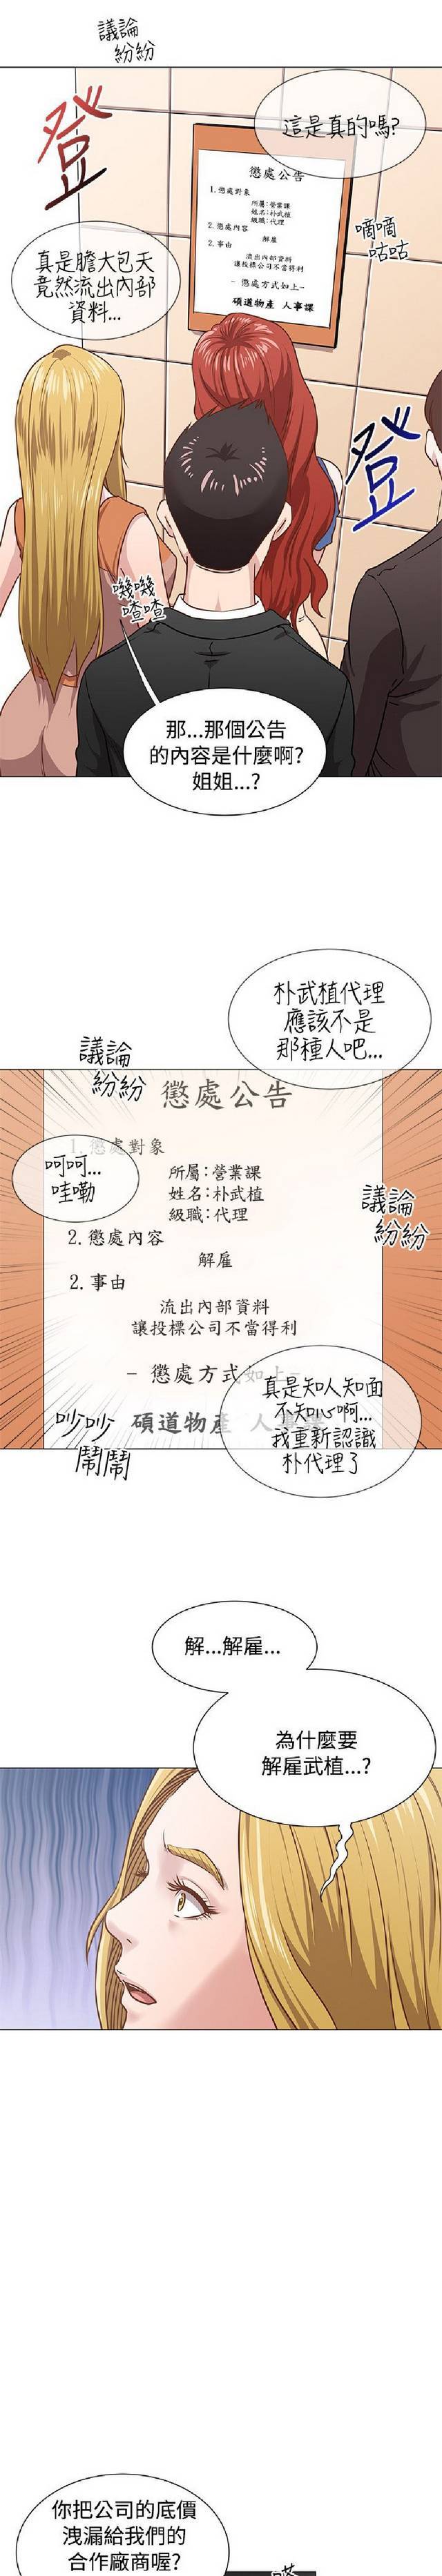 議論
紛紛
登
這是真的嗎?
懲處公告
1.懲處對象
所屬:營業課
姓名:朴武植
級職:代理
2.懲處內容
解雇
2.事由
流出內部資料
讓投標公司不當得利
- 懲處方式如上-
碩道物產 人事課
嘀嘀
咕咕
真是膽大包天
竟然流出內部
資料...
登
嘰嘰
喳喳
那...那個公告
的內容是什麼啊?
姐姐...?
朴武植代理
應該不是
那種人吧...
議論
紛紛
懲處公告
1.懲處對象
呵呵...
哇嘞
所屬:營業課
姓名:朴武植
級職:代理
議論
紛紛
2.懲處內容
解雇
2.事由
流出內部資料
讓投標公司不當得利
- 懲處方式如上-
真是知人知面
不知心啊...
我重新認識
朴代理了
碩道物產 人事課
吵吵
鬧鬧
解...解雇...
為什麼要
解雇武植...?
你把公司的底價
洩漏給我們的
合作廠商喔?